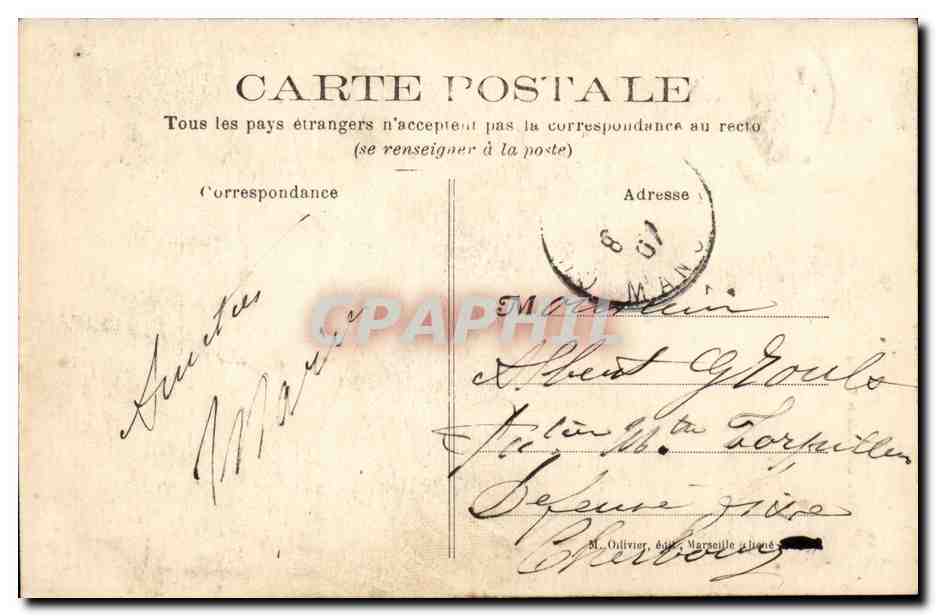 CARTE POSTALE
Tous les pays étrangers n'acceptent pas la correspondance au recto
(se renseigner à la poste)
Correspondance
Adresse
8
07
MANS
CPAPHIL
Amitiés
Monsieur
Albert
Mtre Torpilleur
Defense fixe
M. Ollivier, édit., Marseille
Cherbourg